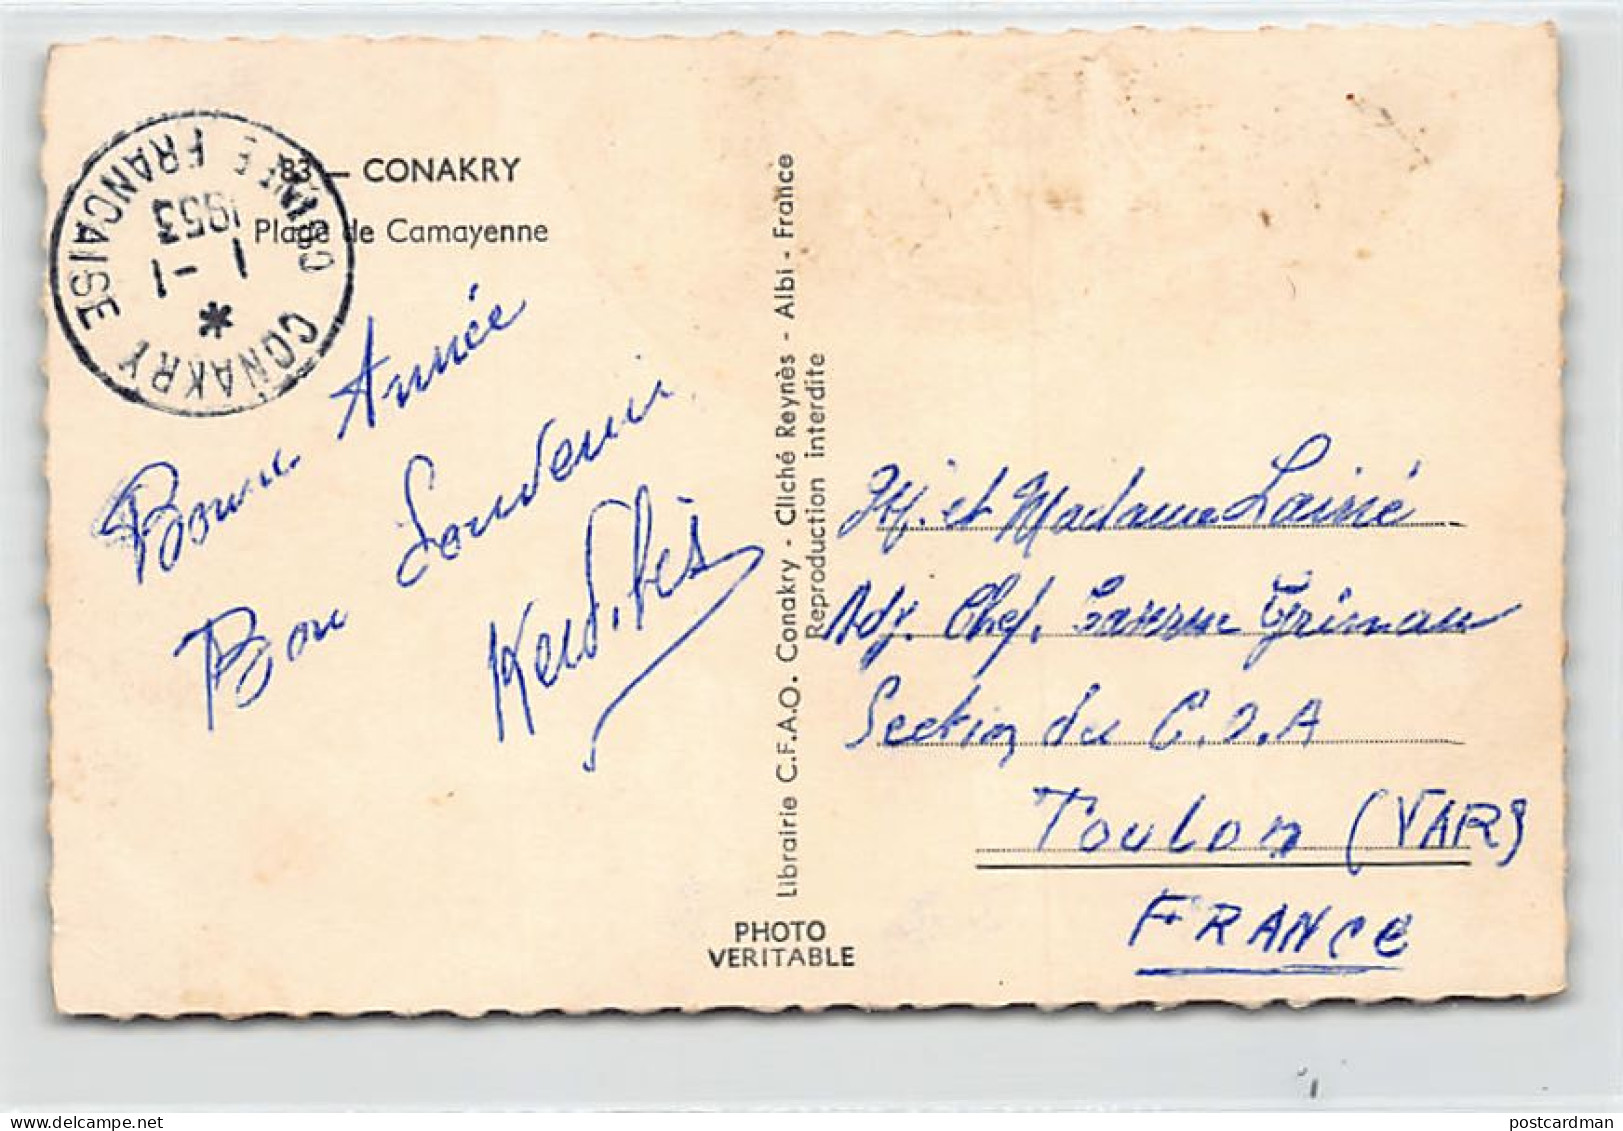 83 — CONAKRY
Plage de Camayenne
CONAKRY
GUINEE FRANCAISE
1 - 1
1953
Bonne Année
Bon Souvenir
Librairie C.F.A.O. Conakry - Cliché Reynès - Albi - France
Reproduction interdite
PHOTO
VERITABLE
M. et Madame Lainé
Adj. Chef. Caserne Grignan
Section du C.O.A
Toulon (VAR)
FRANCE
postcardman